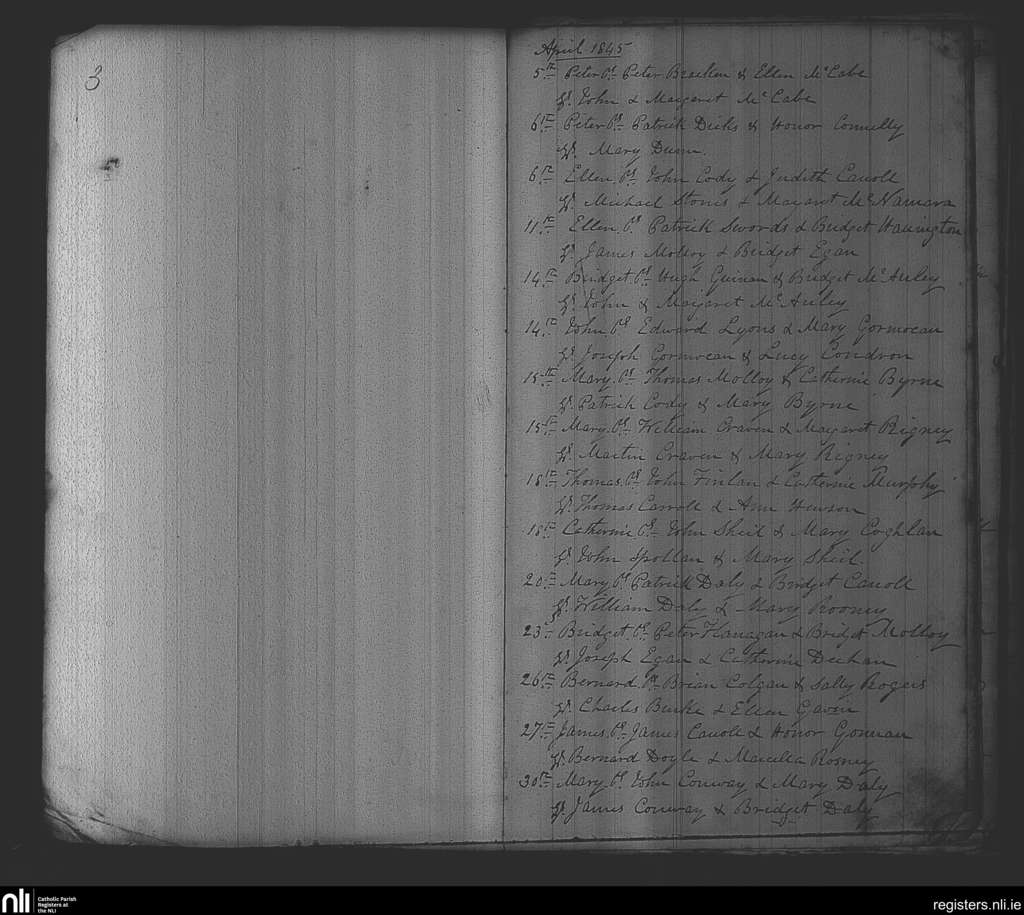 3
April 1845
5th Peter Ps. Peter Bracken & Ellen McCabe
Gs. John & Margaret McCabe
6th Peter Ps. Patrick Dicks & Honor Connelly
Gs. Mary Dunn.
6th Ellen. Ps. John Cody & Judith Carroll
Gs. Michael & Margaret McNamara
11th Ellen. Ps. Patrick Swords & Bridget Harrington
Gs. James Molloy & Bridget Egan
14th Bridget. Ps. Hugh Guinan & Bridget McAuley
Gs. John & Margaret McAuley
14th John. Ps. Edward Lyons & Mary Gormocan
Gs. Joseph Gormocan & Lucy Condron
15th Mary. Ps. Thomas Molloy & Catherine Byrne
Gs. Patrick Cody & Mary Byrne
15th Mary. Ps. William Craven & Margaret Rigney
Gs. Martin Craven & Mary Rigney
18th Thomas. Ps. John Finlan & Catherine Murphy
Gs. Thomas Carroll & Ann Hewson
18th Catherine Ps. John Sheil & Mary Coghlan
Gs. John Spollan & Mary Sheil.
20th Mary. Ps. Patrick Daly & Bridget Carroll
Gs. William Daly & Mary Rooney
23rd Bridget. Ps. Peter Flanagan & Bridget Molloy
Gs. Joseph Egan & Catherine Deehan
26th Bernard. Ps. Brian Colgan & Sally Rogers
Gs. Charles Burke & Ellen Gavin
27th James. Ps. James Carroll & Honor Gorman
Gs. Bernard Doyle & Marcella Rosney
30th Mary. Ps. John Conway & Mary Daly
Gs. James Conway & Bridget Daly
nli Catholic Parish
Registers at
the NLI
registers.nli.ie